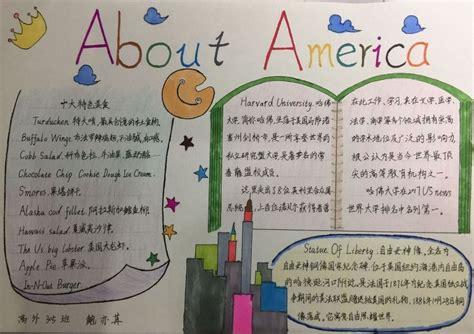 About America
十大特色美食
Turducken 特大啃,最具创意的杂交禽
Buffalo Wings 布法罗辣鸡翅
Cobb Salad 科布色拉
Chocolate Chip Cookie Dough Ice Cream
S'mores.果塔饼干
Alaska cod fillet.阿拉斯加鳕鱼柳
Hawaii salad 夏威夷沙律
The US big lobster 美国大龙虾.
Apple Pie 苹果派.
In-N-Out Burger
Harvard University 哈佛
大学,简称哈佛,坐落于美国马萨诸
塞州剑桥市,是一所享誉世界的
私立研究型大学,是著名的常
春藤盟校成员。
这里走出了8位美利坚合众
国总统,上百位诺贝尔获得者曾
在此工作、学习,其在文学、医学、
法学、商学等多个领域拥有崇高
的学术地位及广泛的影响力,
被公认为是当今世界最顶
尖的高等教育机构之一。
哈佛大学在2017US news
世界大学排名中名列第一。
Statue Of Liberty.自由女神像,全名为
自由女神铜像国家纪念碑,位于美国纽约海港内自由
岛的哈德逊河口附近,是法国于1876年为纪念美国独立战
争期间的美法联盟赠送给美国的礼物,1886年10月28日铜
像落成。它寓意自由照耀世界.